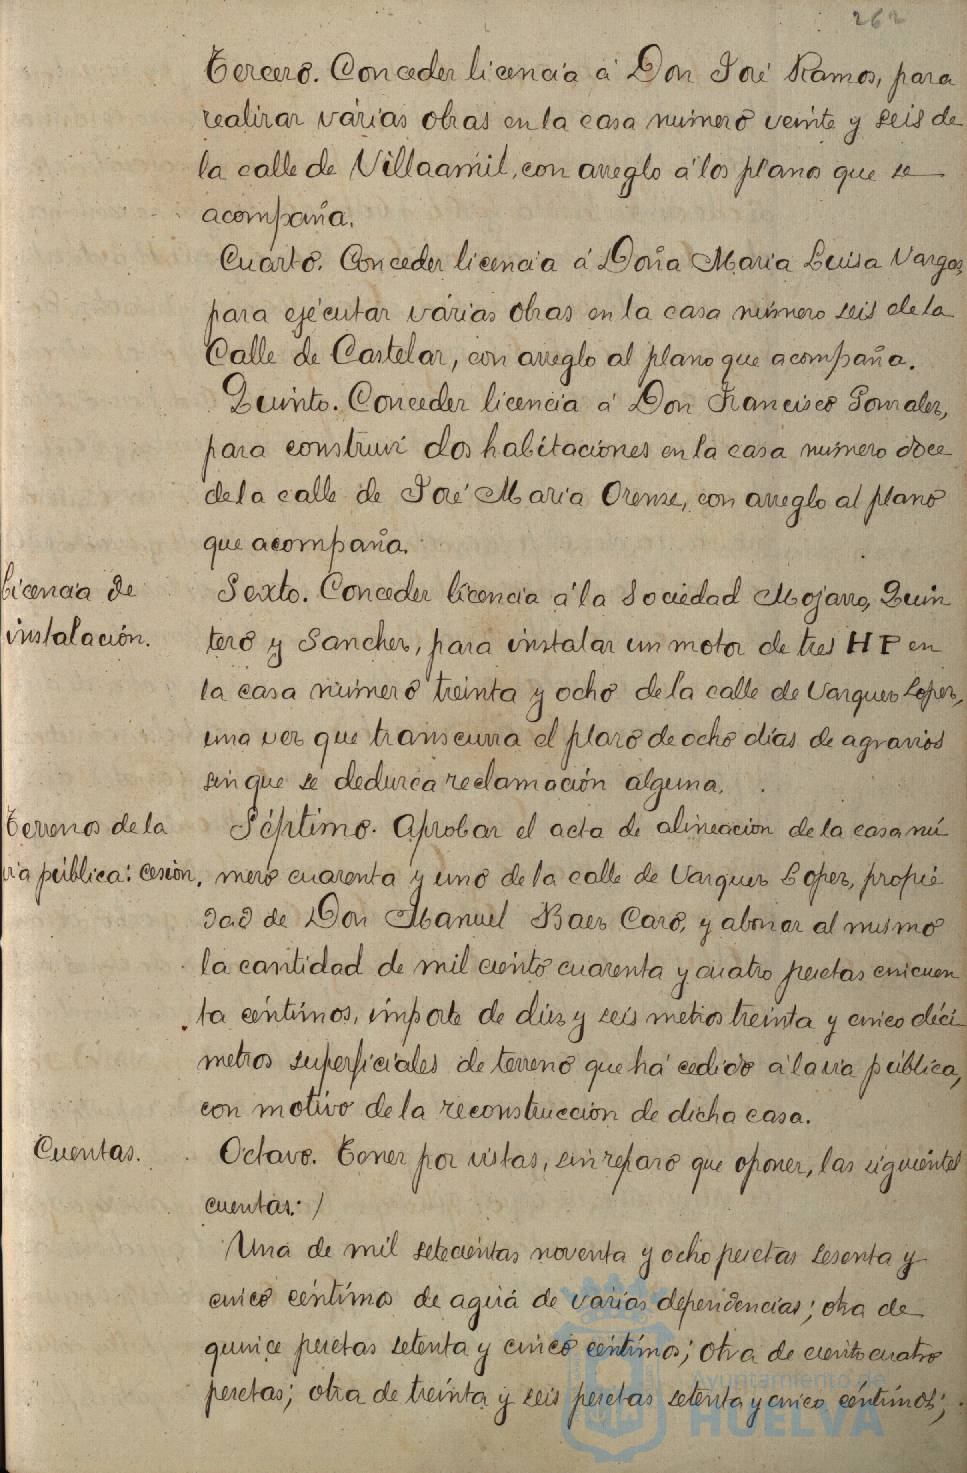 262
Tercero. Conceder licencia á Don José Ramos, para
realizar várias obras en la casa número veinte y seis de
la calle de Villaamil, con arreglo á los planos que se
acompaña.
Cuarto. Conceder licencia á Doña Maria Luisa Vargas,
para ejecutar várias obras en la casa número seis de la
Calle de Castelar, con arreglo al plano que acompaña.
Quinto. Conceder licencia á Don Francisco Gonzalez,
para construir dos habitaciones en la casa número doce
de la calle de José Maria Orense, con arreglo al plano
que acompaña.
Licencia de
instalación.
Sexto. Conceder licencia á la Sociedad Mojarro, Quin
tero y Sanchez, para instalar un motor de tres HP en
la casa número treinta y ocho de la calle de Vazquez Lopez,
una vez que transcurra el plazo de ocho días de agravios
sin que se deduzca reclamación alguna.
Terrenos de la
via pública: cesión.
Séptimo. Aprobar el acta de alineación de la casa nú
mero cuarenta y uno de la calle de Vazquez Lopez, propie
dad de Don Manuel Baez Caro, y abonar al mismo
la cantidad de mil ciento cuarenta y cuatro pesetas cincuen
ta céntimos, importe de diez y seis metros treinta y cinco decí
metros superficiales de terreno que há cedido á la via pública,
con motivo de la reconstrucción de dicha casa.
Cuentas.
Octavo. Tener por vistas, sin reparo que oponer, las siguientes
cuentas: /
Una de mil setecientas noventa y ocho pesetas sesenta y
cinco céntimos de agua de varias dependencias; otra de
quince pesetas setenta y cinco céntimos; otra de ciento cuatro
pesetas; otra de treinta y seis pesetas setenta y cinco céntimos;
Ayuntamiento de
HUELVA